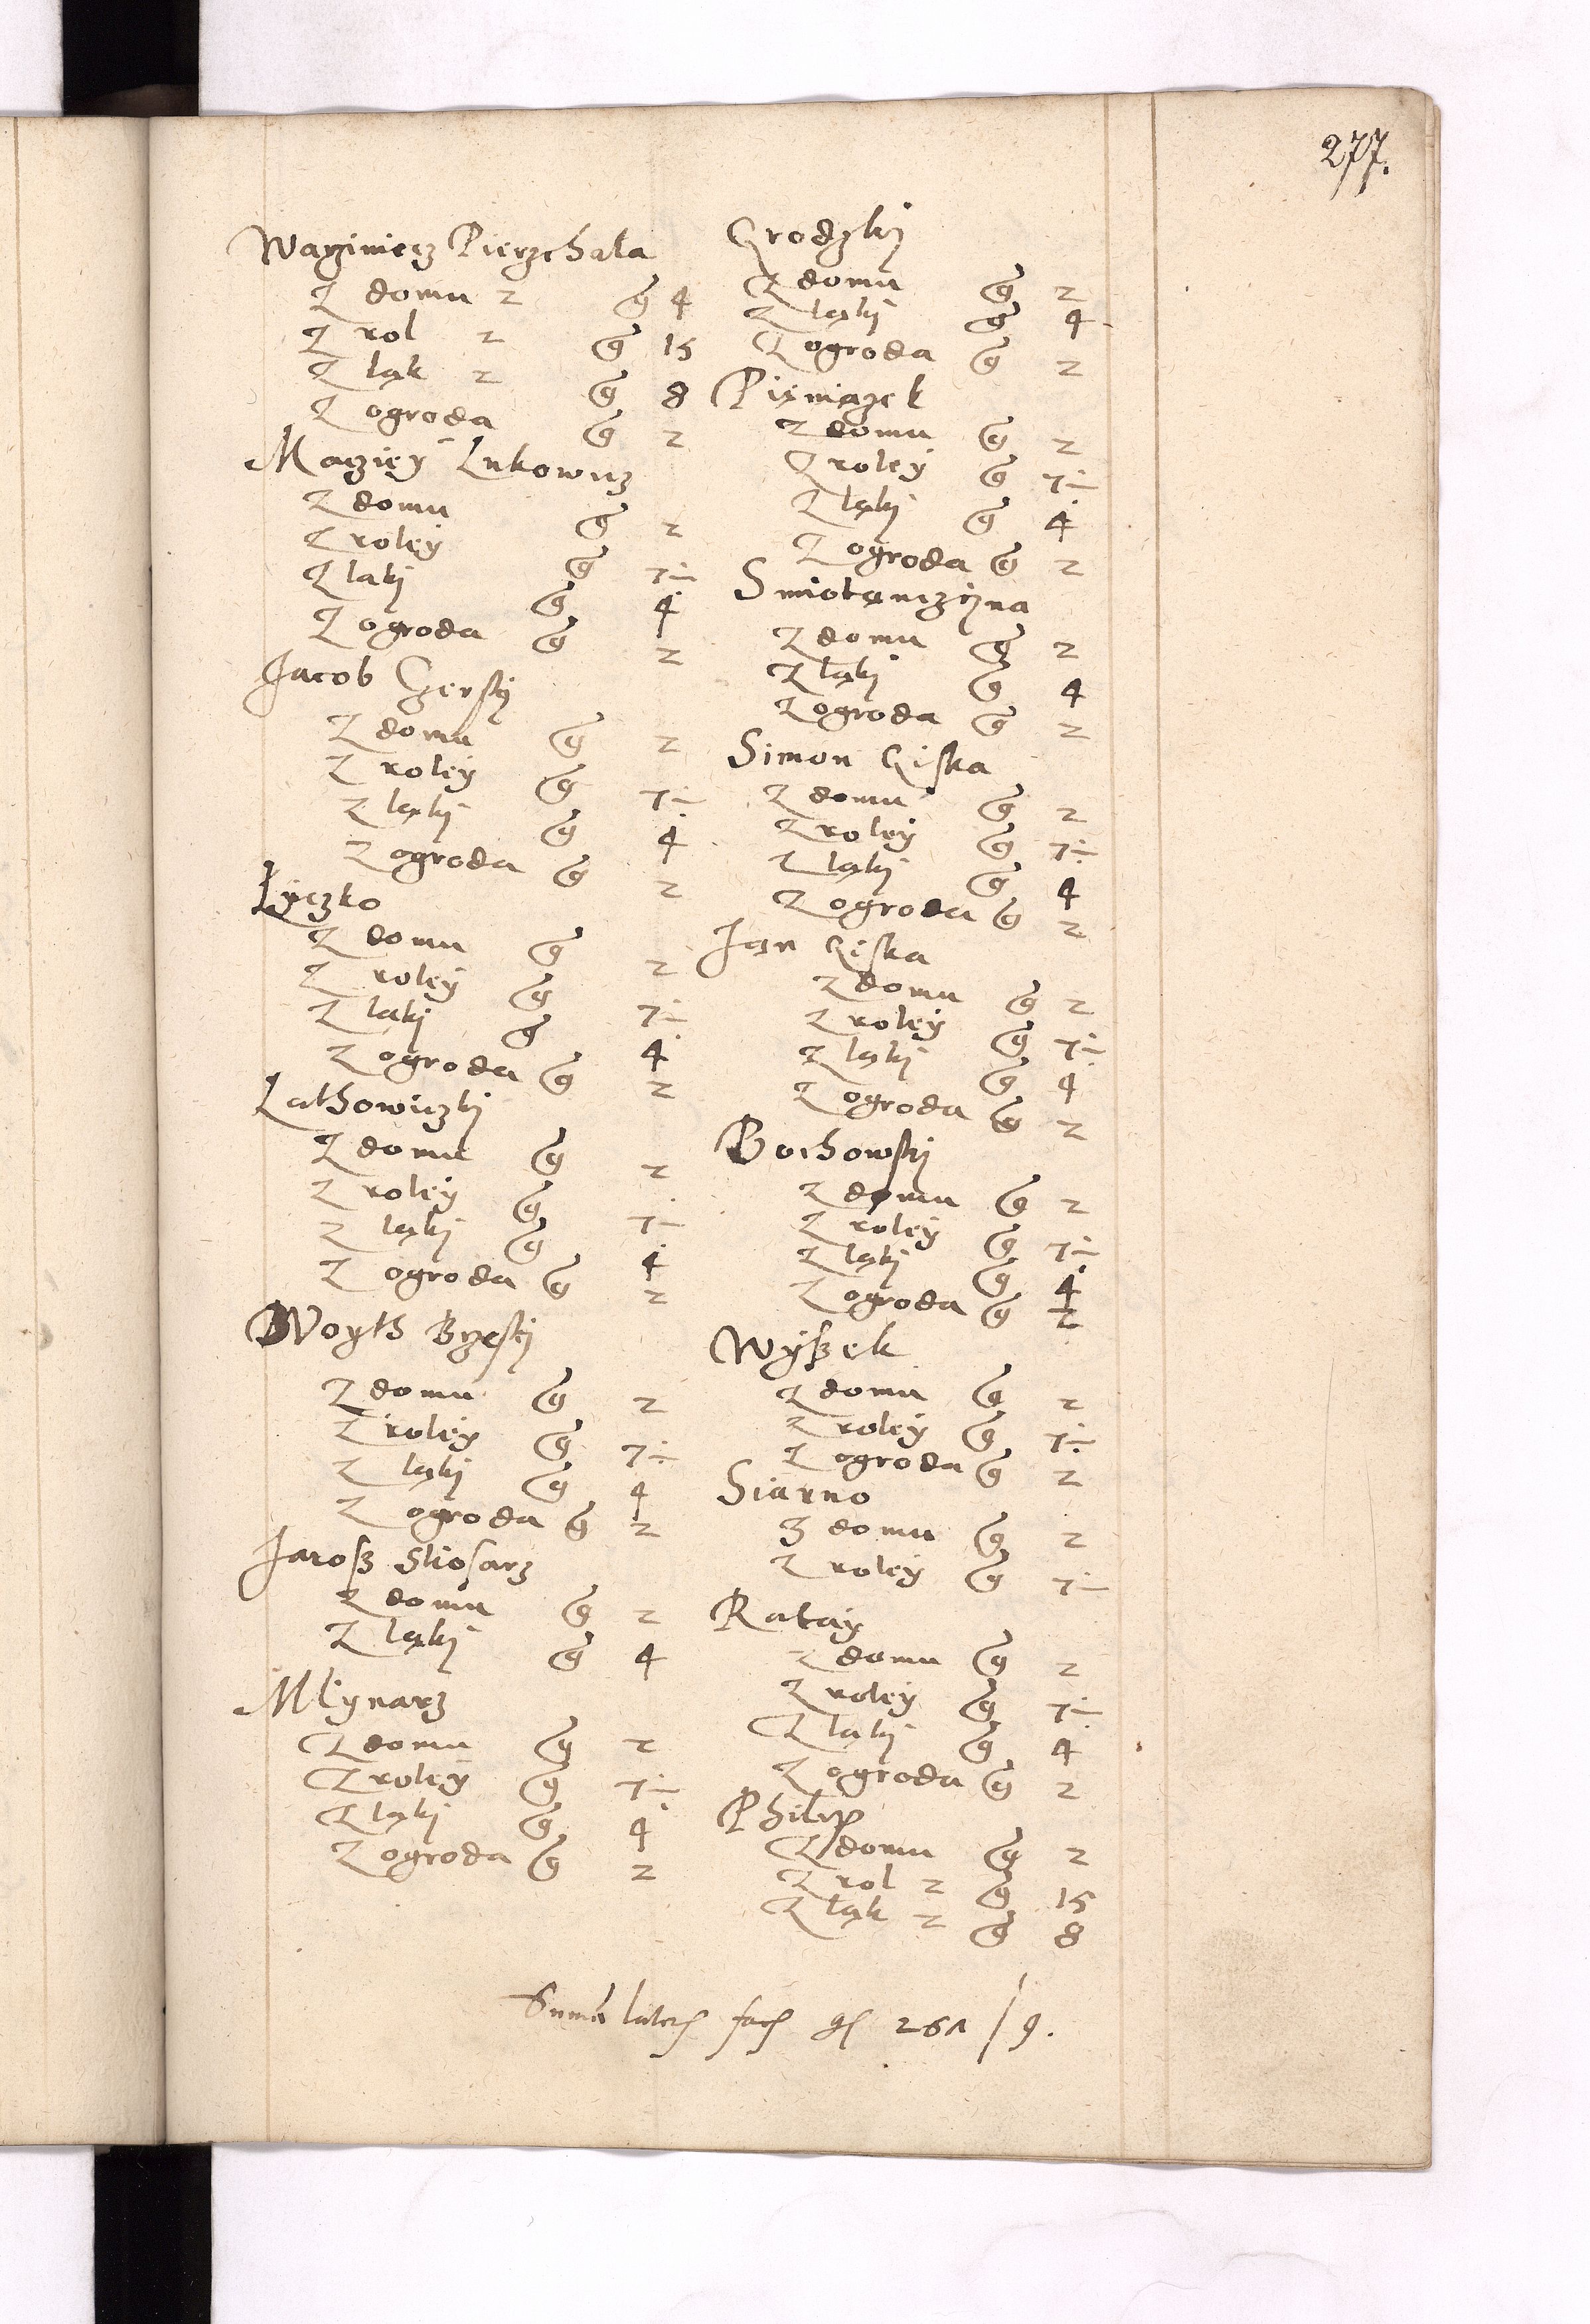 277.
Waziniecz Pierzchala
Z domu 2 g 4
Z rol 2 g 15
Zląk 2 g 8
Z ogroda g 2
Macziey Lukowicz
Z domu g 2
Z roley g 7 ÷
Z laki g 4
Z ogroda g 2
Jacob Czersky
Z domu g 2
Z roley g 7 ÷
Z ląki g 4
Z ogroda g 2
Lyczko
Z domu g 2
Z roley g 7 ÷
Z laki g 4
Z ogroda g 2
Lathowiczki
Z domu g 2
Z roley g 7 ÷
Z ląki g 4
Z ogroda g 2
Woyth Brzesky
Z domu g 2
Z roley g 7 ÷
Z ląki g 4
Z ogroda g 2
Jarosz Sliosarz
Z domu g 2
Z ląki g 4
Mlynarz
Z domu g 2
Z roley g 7 ÷
Z ląki g 4
Z ogroda g 2
Grodzki
Z domu g 2
Z ląki g 4
Z ogroda g 2
Pieniązek
Z domu g 2
Z roley g 7 ÷
Z ląki g 4
Z ogroda g 2
Smiotanczyna
Z domu g 2
Z ląki g 4
Z ogroda g 2
Simon Giska
Z domu g 2
Z roley g 7 ÷
Z ląki g 4
Z ogroda g 2
Jan Giska
Z domu g 2
Z roley g 7 ÷
Z ląki g 4
Z ogroda g 2
Bochowski
Z domu g 2
Z roley g 7 ÷
Z ląki g 4
Z ogroda g 2
Wyszek
Z domu g 2
Z roley g 7 ÷
Z ogroda g 2
Siarno
Z domu g 2
Z roley g 7 ÷
Ratay
Z domu g 2
Z roley g 7 ÷
Z laki g 4
Z ogroda g 2
Philip
Z domu g 2
Z rol 2 g 15
Z ląk 2 g 8
Suma lateris facit gr 261 / 9.